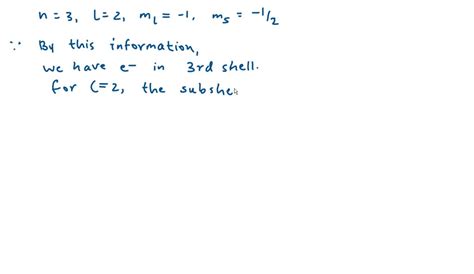 n = 3, l = 2, ml = -1, ms = -1/2
∵ By this information,
we have e- in 3rd shell.
for l = 2, the subshe